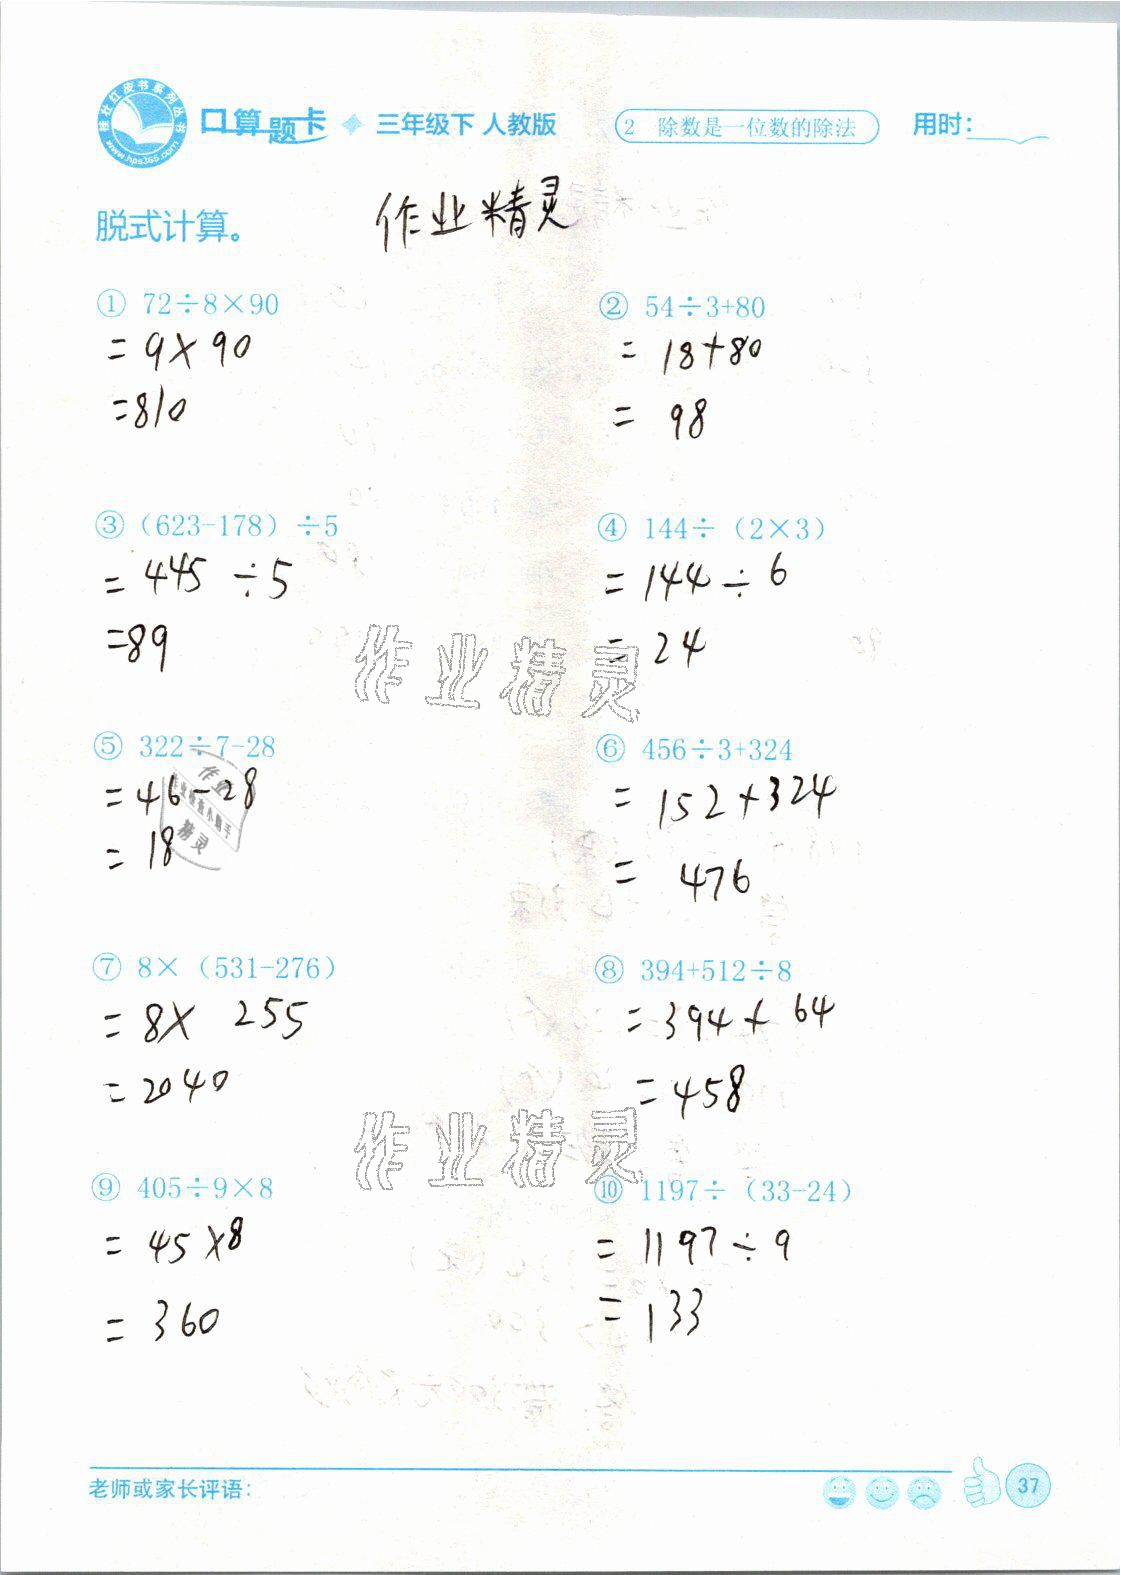 桂壮红皮书系列丛书
www.hps365.com
口算题卡 三年级下 人教版 2 除数是一位数的除法 用时：
脱式计算。 作业精灵
① 72÷8×90
=9×90
=810
② 54÷3+80
=18+80
=98
③（623-178）÷5
=445÷5
=89
④ 144÷（2×3）
=144÷6
=24
作业精灵
⑤ 322÷7-28
=46-28
=18
作业
作业检查小助手
精灵
⑥ 456÷3+324
=152+324
=476
⑦ 8×（531-276）
=8×255
=2040
⑧ 394+512÷8
=394+64
=458
作业精灵
⑨ 405÷9×8
=45×8
=360
⑩ 1197÷（33-24）
=1197÷9
=133
老师或家长评语：
37